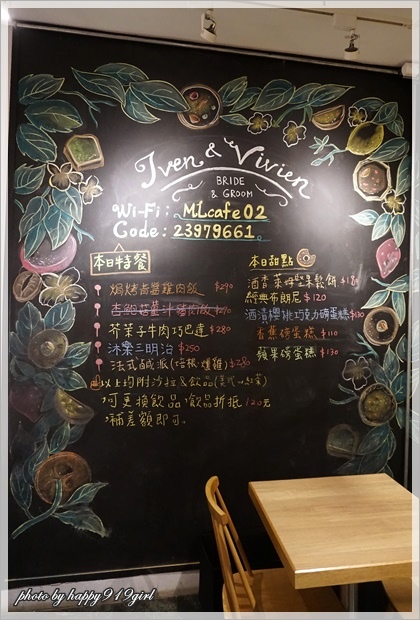 Iven & Vivien
BRIDE
& GROOM
Wi-Fi: MLcafe 02
Code: 23979661
本日特餐
焗烤青醬雞肉飯 $290
杏鮑菇薑汁豬肉飯 $270
芥茉子牛肉巧巴達 $280
沐樂三明治 $250
法式鹹派(培根、燻雞) $280
以上均附沙拉&飲品(美式or紅茶)
可更換飲品,飲品折抵120元
補差額即可。
本日甜點
酒香萊姆堅果鬆餅 $18
經典布朗尼 $120
酒漬櫻桃巧克力磅蛋糕 $130
香蕉磅蛋糕 $110
蘋果磅蛋糕 $130
photo by happy919girl